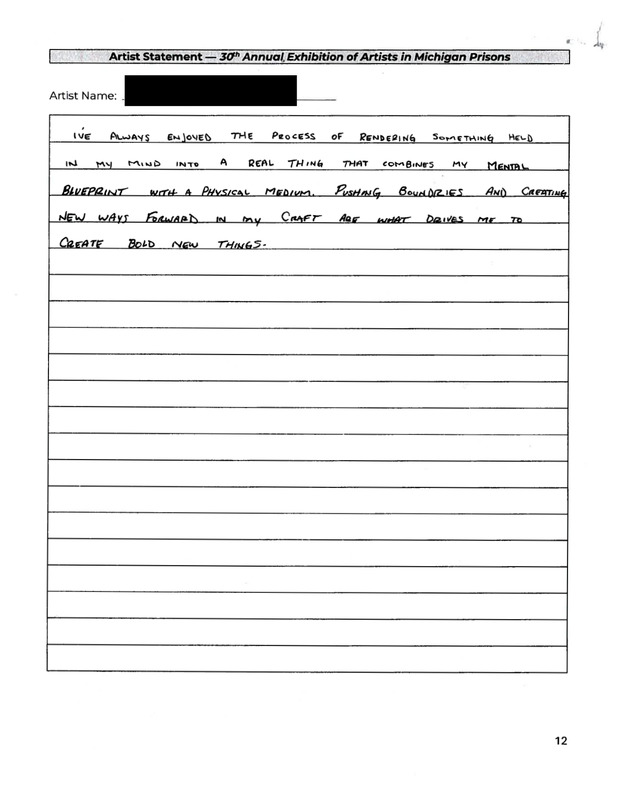 Artist Statement — 30th Annual Exhibition of Artists in Michigan Prisons
Artist Name:
I'VE ALWAYS ENJOYED THE PROCESS OF RENDERING SOMETHING HELD
IN MY MIND INTO A REAL THING THAT COMBINES MY MENTAL
BLUEPRINT WITH A PHYSICAL MEDIUM. PUSHING BOUNDRIES AND CREATING
NEW WAYS FORWARD IN MY CRAFT ARE WHAT DRIVES ME TO
CREATE BOLD NEW THINGS.
12